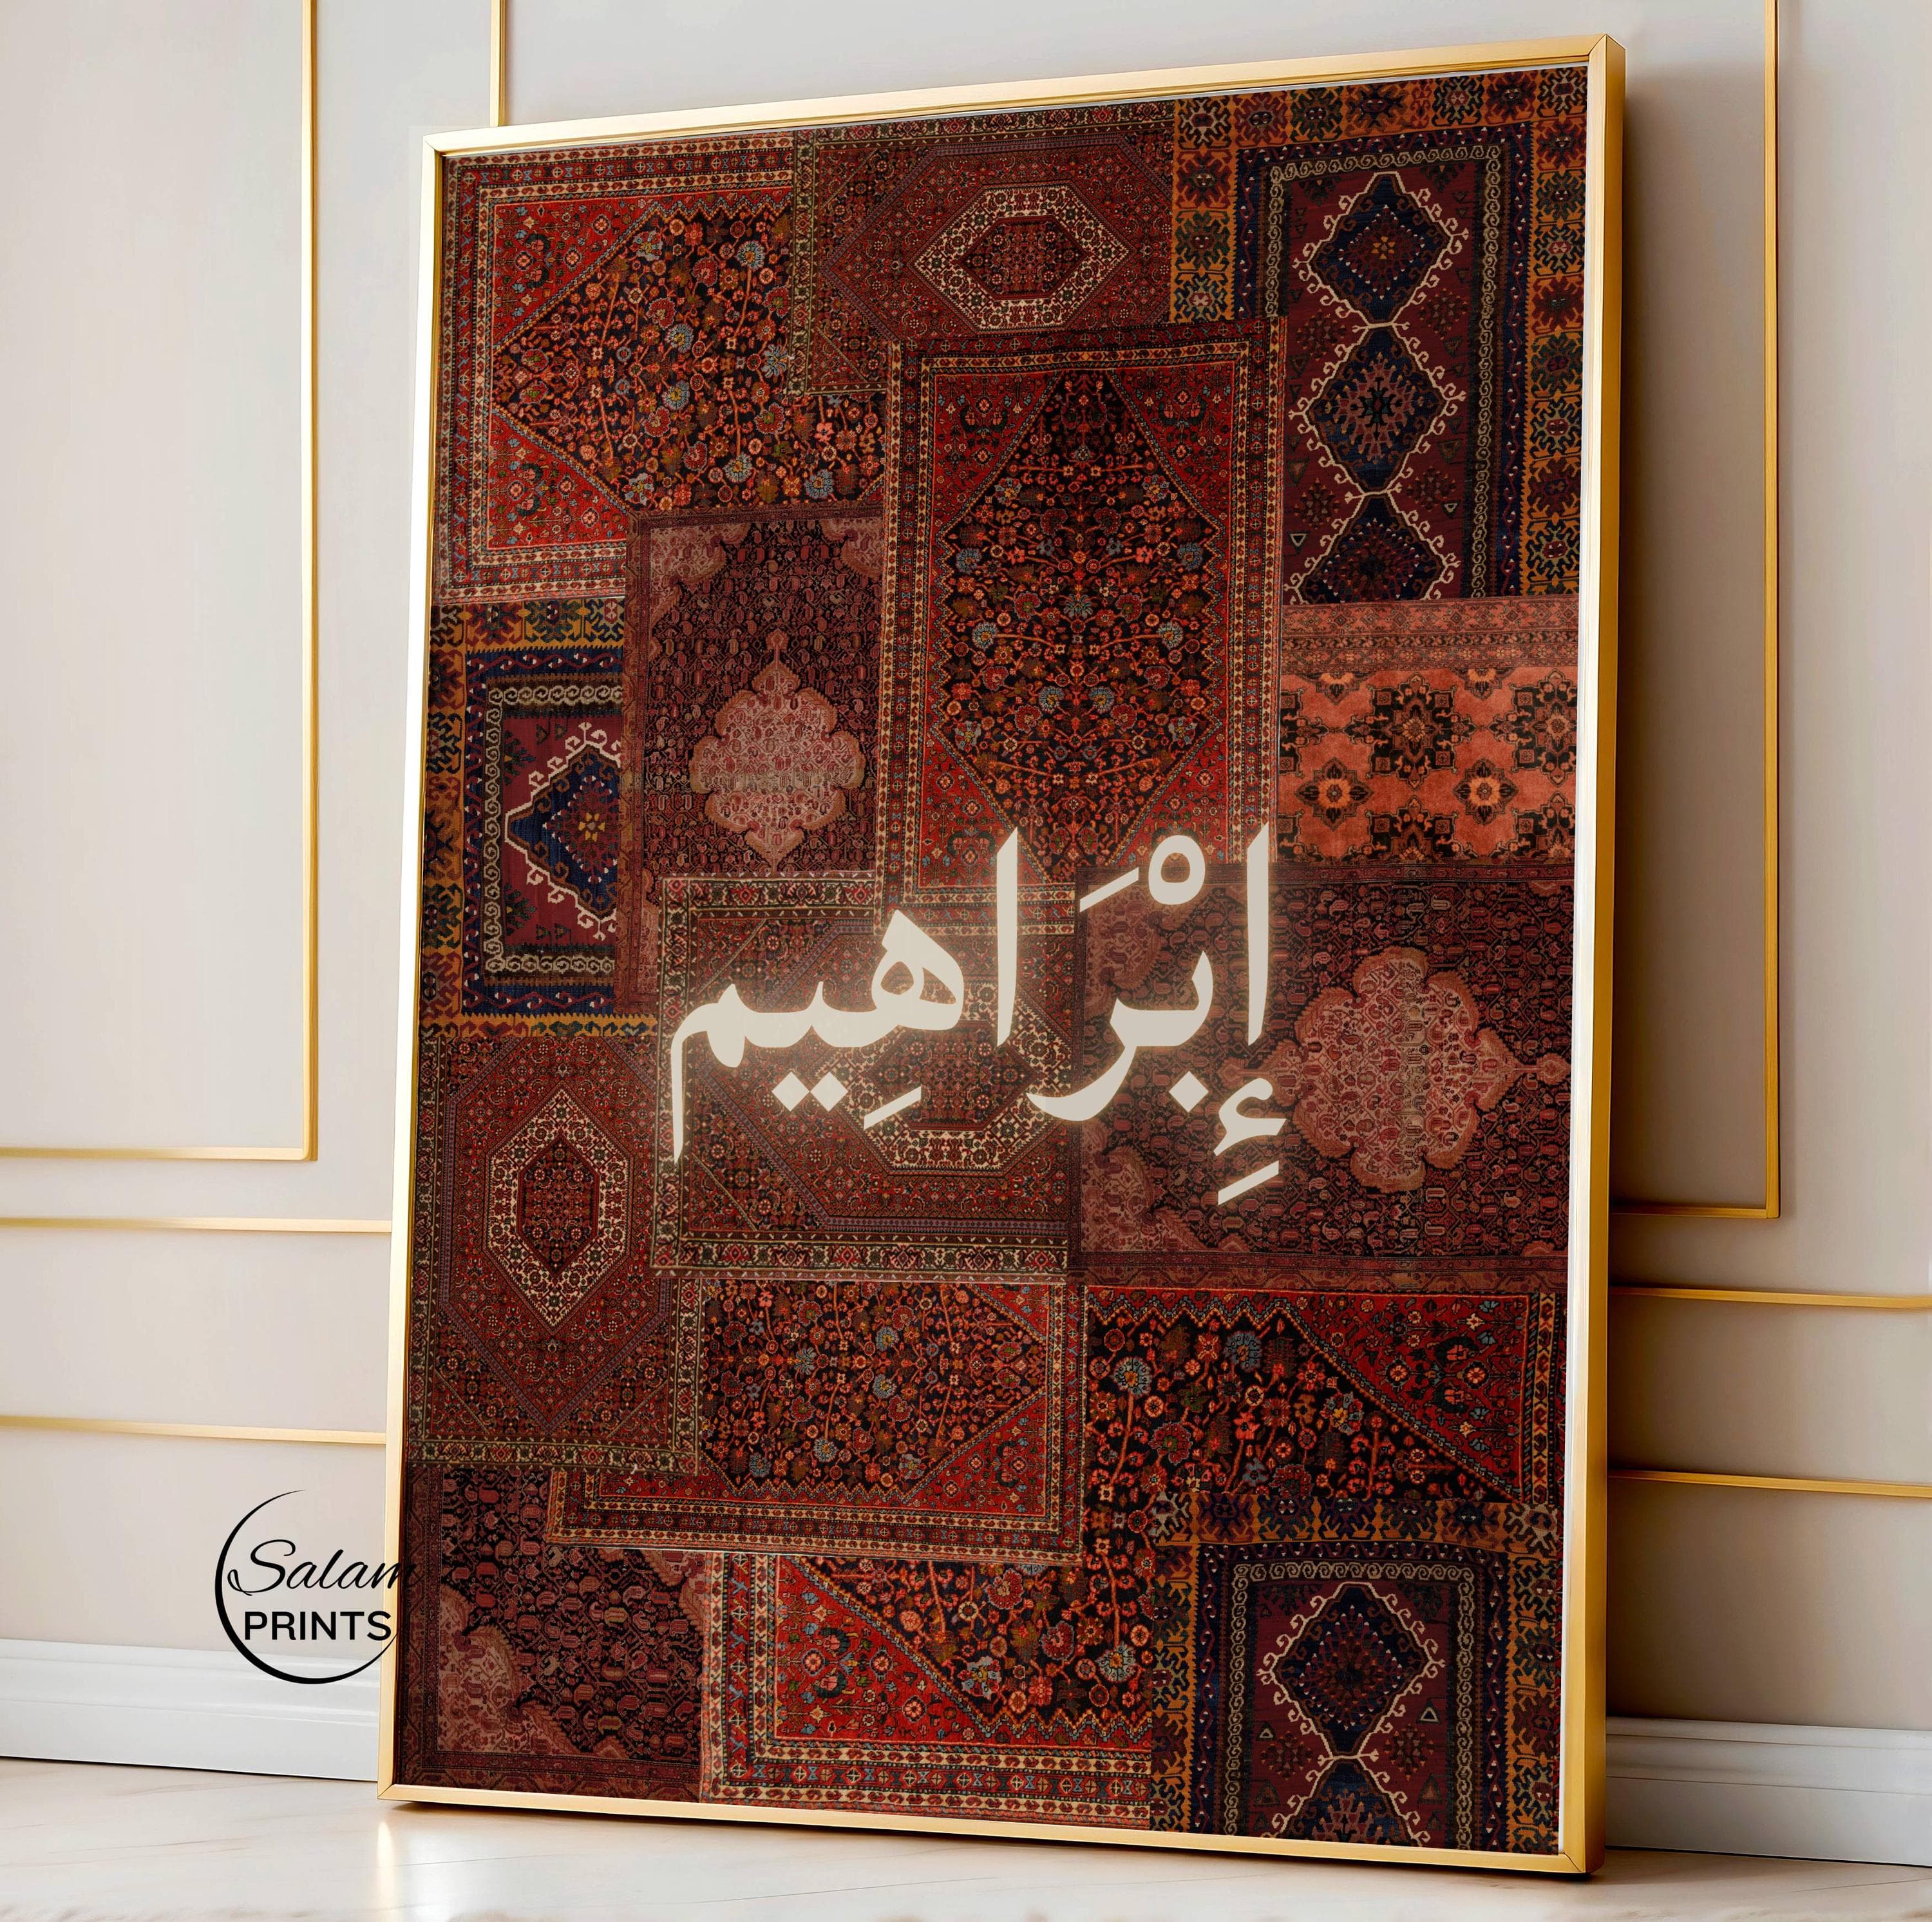 إِبْرَاهِيم
Salam
PRINTS